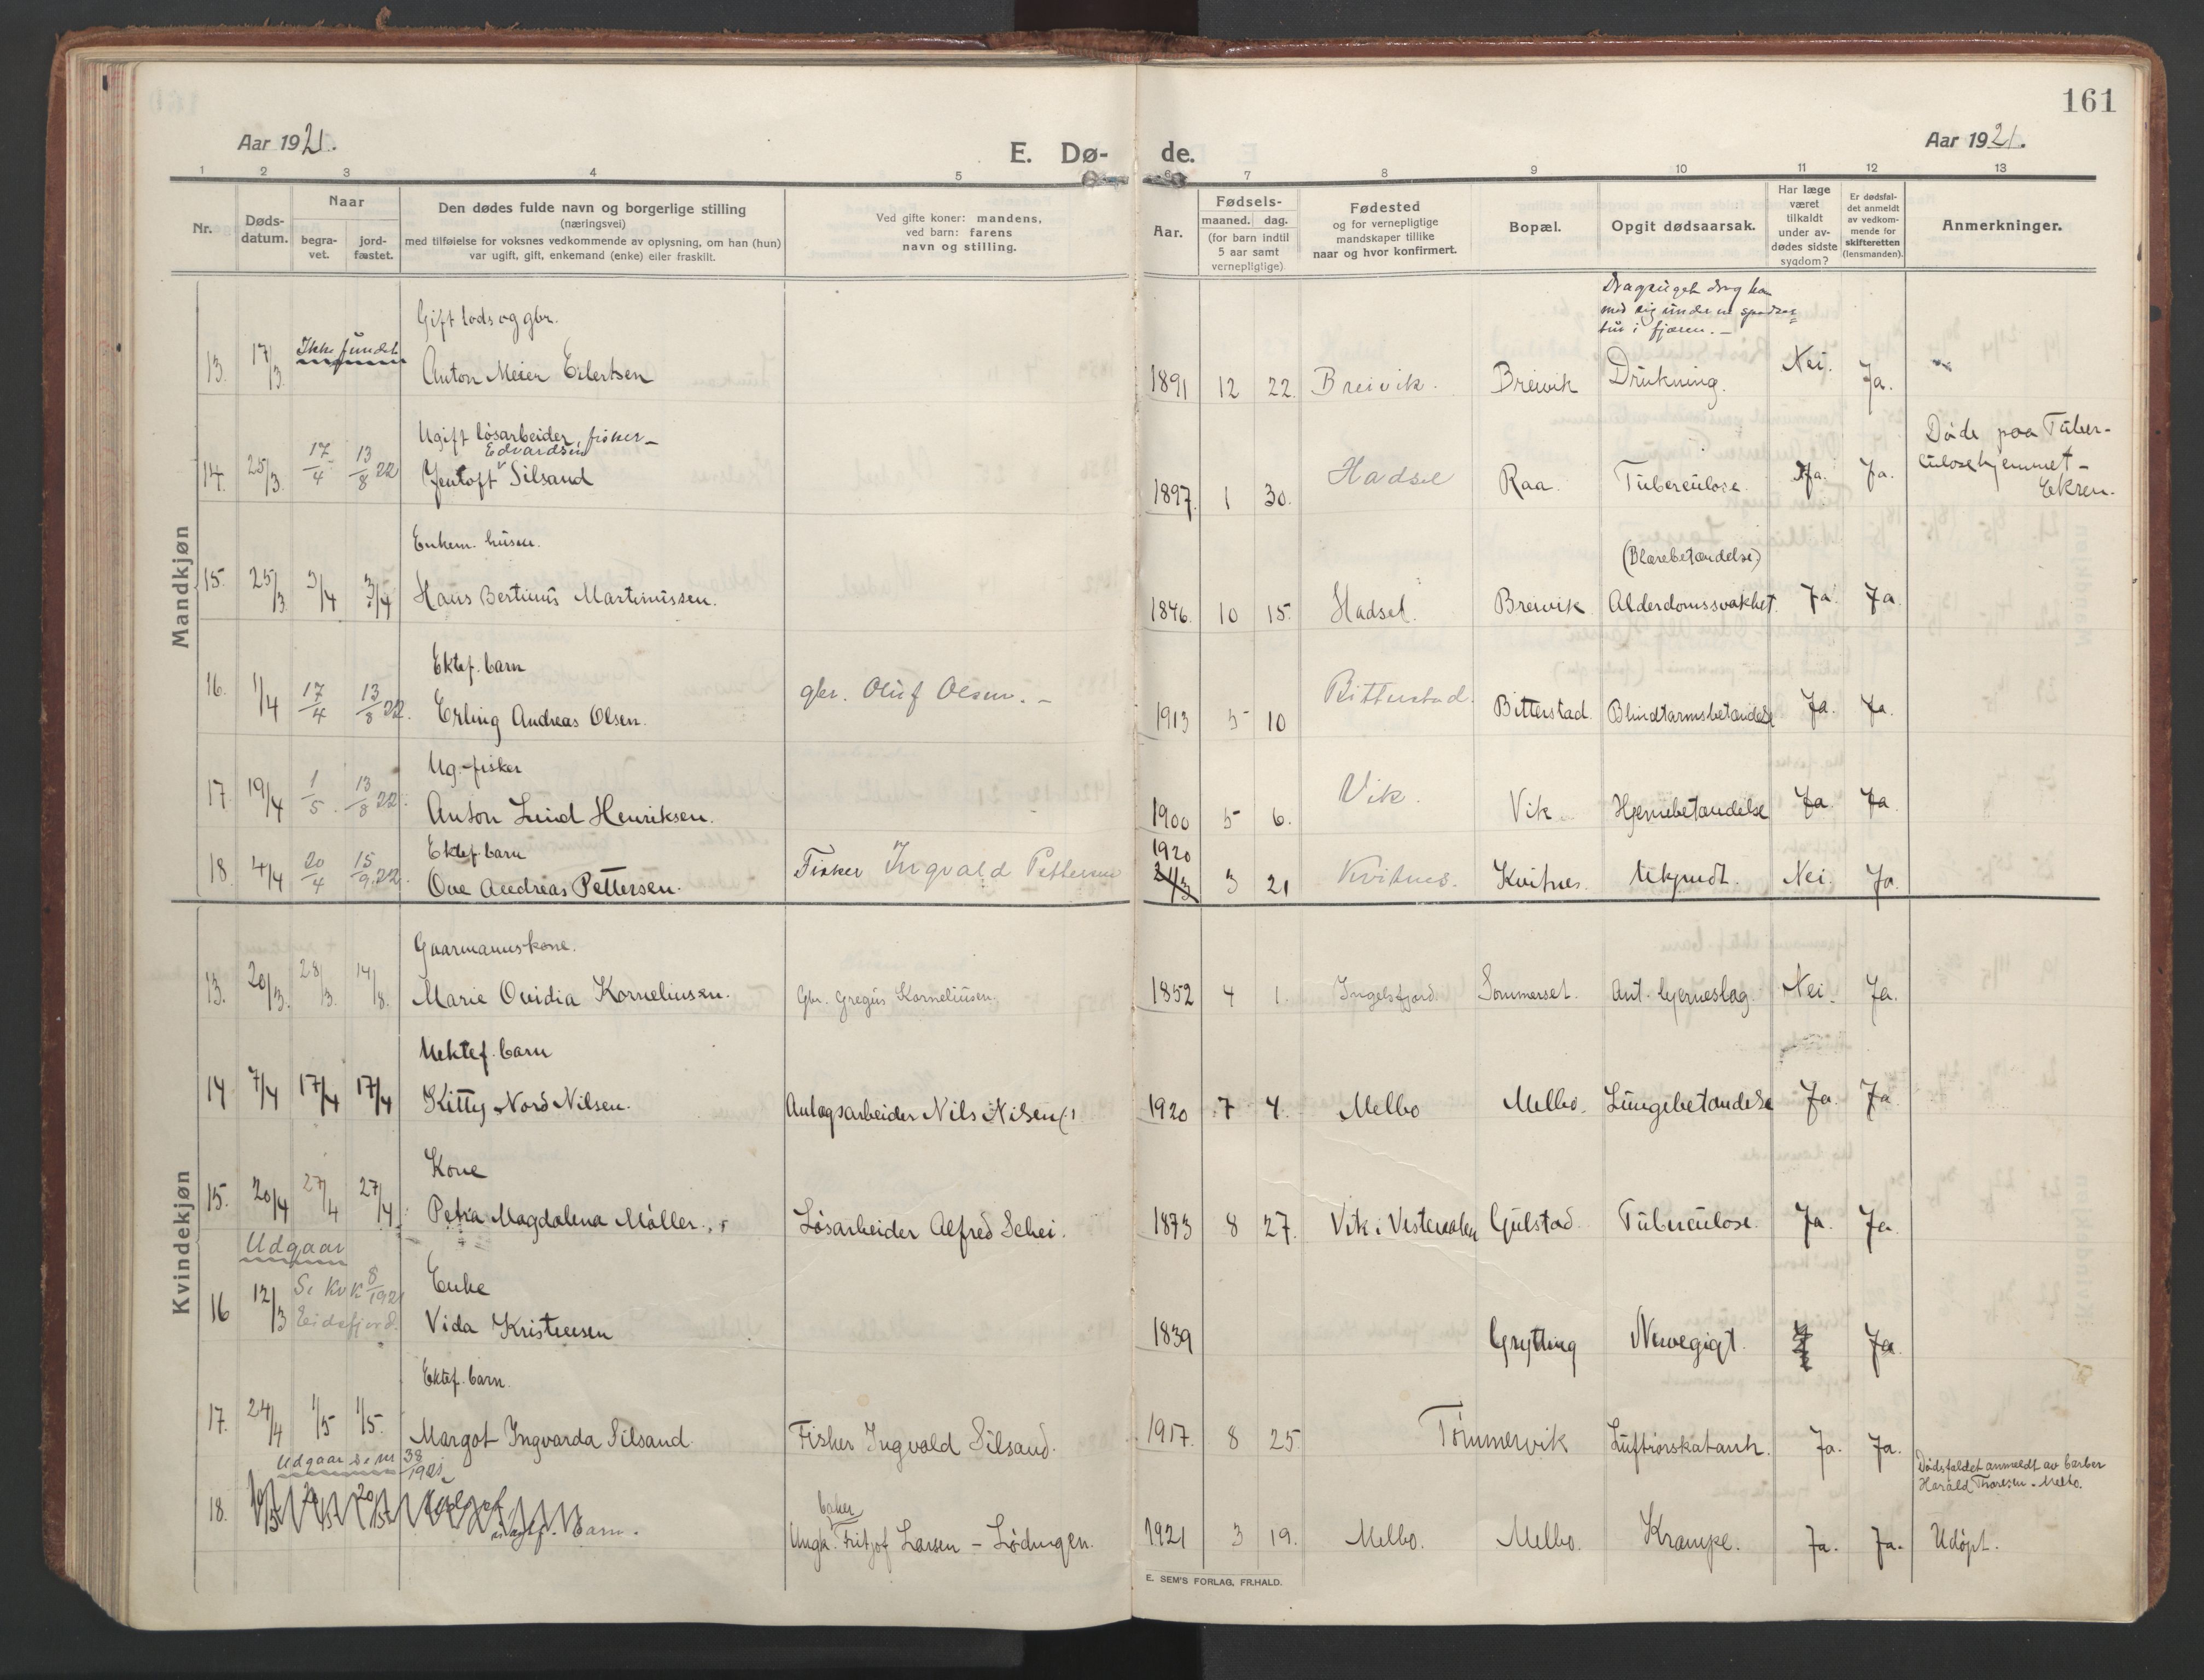 161
Aar 1921.
E. Dø-
de.
Aar 1921.
1 2 3 4 5 6 7 8 9 10 11 12 13
Nr.
Døds-
datum.
Naar
begra-
vet.
jord-
fæstet.
Den dødes fulde navn og borgerlige stilling
(næringsvei)
med tilføielse for voksnes vedkommende av oplysning, om han (hun)
var ugift, gift, enkemand (enke) eller fraskilt.
Ved gifte koner: mandens,
ved barn: farens
navn og stilling.
Aar.
Fødsels-
maaned. dag.
(for barn indtil
5 aar samt
vernepligtige)
Fødested
og for vernepligtige
mandskaper tillike
naar og hvor konfirmert.
Bopæl.
Opgit dødsaarsak.
Har læge
været
tilkaldt
under av-
dødes sidste
sygdom?
Er dødsfal-
det anmeldt
av vedkom-
mende for
skifteretten
(lensmanden).
Anmerkninger.
Mandkjøn
Gift lods og gbr.
Dragsuget drog ham
med sig under en spadser-
tur i fjæren. –
13. 17/3 Ikke fundet Anton Meier Eilertsen 1891 12 22. Breivik. Breivik Drukning. Nei. Ja.
Ugift løsarbeider, fisker –
Edvardsen
14. 25/3 17/4 13/8 22 Jentoft Silsand 1897. 1 30. Hadsel Raa. Tuberculose. Ja. Ja.
Døde paa Tuber-
culosehjemmet –
Ekren.
Enkem. husm.
(Blærebetændelse)
15. 25/3 3/4 3/4 Hans Bertinus Martinussen. 1846. 10 15. Hadsel. Breivik Alderdomssvakhet. Ja. Ja.
Ektef. barn
16. 1/4 17/4 13/8 22. Erling Andreas Olsen. gbr. Oluf Olsen. – 1913 5 10 Bitterstad. Bitterstad. Blindtarmsbetændelse Ja. Ja.
Ug. fisker
17. 19/4 1/5. 13/8 22. Anton Lind Henriksen. 1900 5 6. Vik. Vik Hjernebetændelse Ja. Ja.
Ektef. barn
1920
18. 4/4 20/4 15/9 22. Ove Andreas Pettersen. Fisker Ingvald Pettersen 3 21 Kvitnes. Kvitnes. Ukjendt. Nei. Ja.
Kvindekjøn
Gaarmannskone.
13. 20/3. 28/3. 14/8. Marie Ovidia Korneliussen. Gbr. Gregus Korneliusen. 1852 4 1. Ingelsfjord. Sommerset. Ant. hjerneslag Nei. Ja.
Uektef. barn
14 7/4 17/4 17/4 Kitty Nord Nilsen. Anlægsarbeider Nils Nilsen 1920 7 4. Melbo Melbo. Lungebetændelse Ja. Ja.
Kone
15. 20/4 27/4 27/4. Petra Magdalena Møller. Løsarbeider Alfred Schei. 1873 8 27. Vik i Vesteraalen Gulstad. Tuberculose. Ja. Ja.
Udgaar
Se Kv K 8/1921
Eidsfjord.
Enke
16 12/3 Vida Kristensen 1839 Grytting Nervegigt. Ja
Ektef. barn.
17. 24/4 1/5 1/5. Margot Ingvarda Silsand. Fisker Ingvald Silsand. 1917. 8 25. Tømmervik Luftrørskatarrh. Ja. Ja.
Udgaar se nr 38/1921
Dødsfaldet anmeldt av barber
Harald Thoresen – Melbo.
baker
18. barn. Ungk. Fritjof Larsen – Lødingen. 1921 3 19. Melbo. Melbo. Krampe. Ja. Ja. Udøpt.
E. SEM'S FORLAG, FR.HALD.